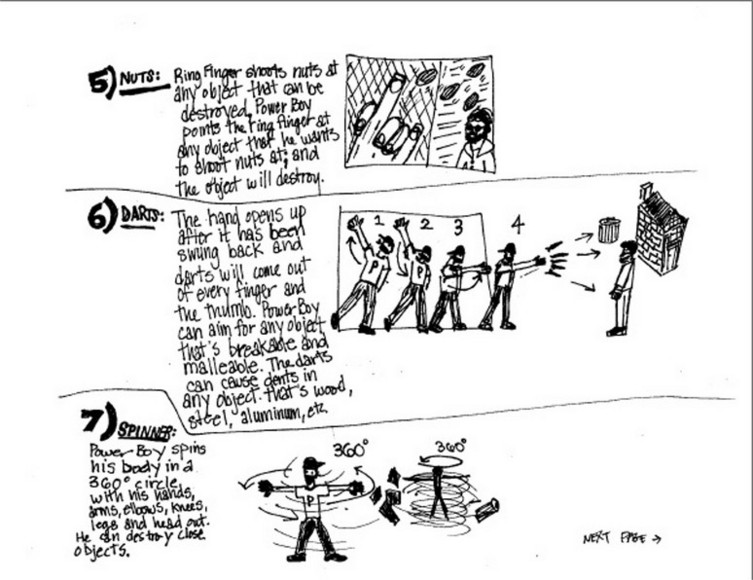 5) NUTS: Ring Finger shoots nuts at
any object that can be
destroyed. Power Boy
points the ring finger at
any object that he wants
to shoot nuts at; and
the object will destroy.
6) DARTS: The hand opens up
after it has been
swung back and
darts will come out
of every finger and
the thumb. Power Boy
can aim for any object
that's breakable and
malleable. The darts
can cause dents in
any object that's wood,
steel, aluminum, etc.
1 2 3 4
P P
7) SPINNER:
Power Boy spins
his body in a
360° circle
with his hands,
arms, elbows, knees,
legs and head out.
He can destroy close
objects.
360° 360°
P
NEXT PAGE →